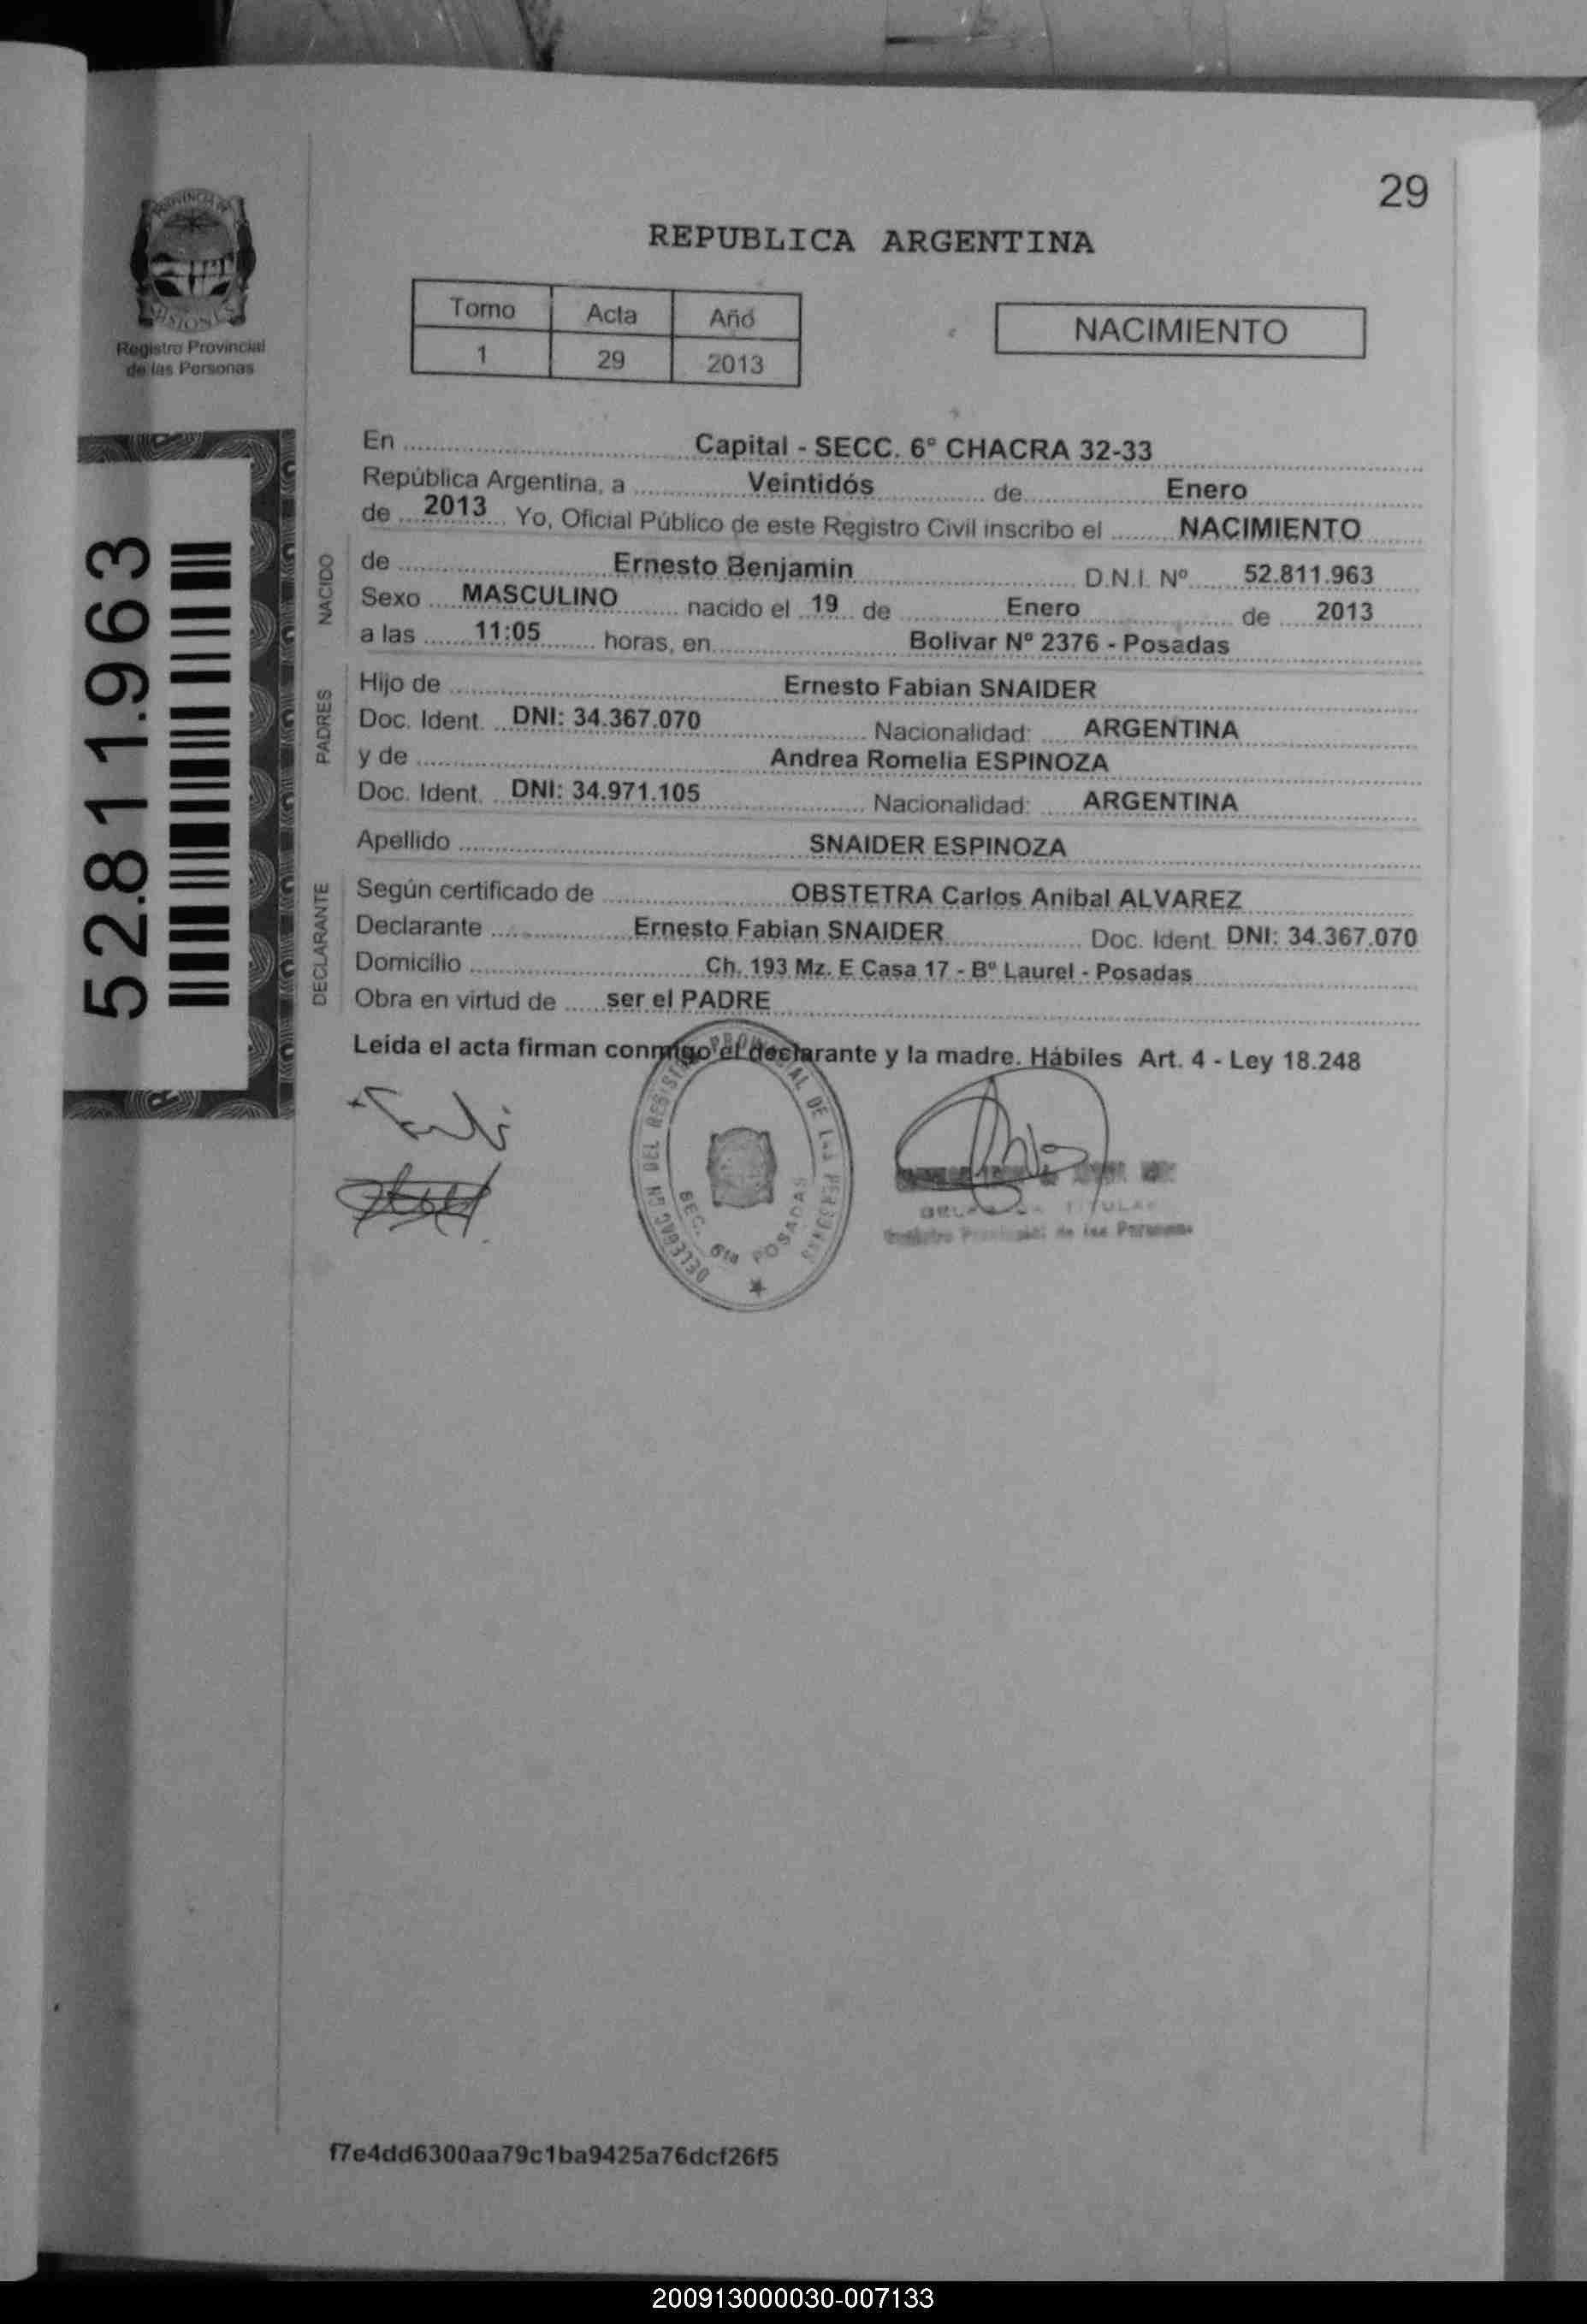 29
PROVINCIA DE
MISIONES
Registro Provincial
de las Personas
REPUBLICA ARGENTINA
Tomo Acta Año
1 29 2013
NACIMIENTO
52.811.963
En Capital - SECC. 6º CHACRA 32-33
República Argentina, a Veintidós de Enero
de 2013 Yo, Oficial Público de este Registro Civil inscribo el NACIMIENTO
NACIDO
de Ernesto Benjamin D.N.I. Nº 52.811.963
Sexo MASCULINO nacido el 19 de Enero de 2013
a las 11:05 horas, en Bolivar Nº 2376 - Posadas
PADRES
Hijo de Ernesto Fabian SNAIDER
Doc. Ident. DNI: 34.367.070 Nacionalidad: ARGENTINA
y de Andrea Romelia ESPINOZA
Doc. Ident. DNI: 34.971.105 Nacionalidad: ARGENTINA
Apellido SNAIDER ESPINOZA
DECLARANTE
Según certificado de OBSTETRA Carlos Anibal ALVAREZ
Declarante Ernesto Fabian SNAIDER Doc. Ident. DNI: 34.367.070
Domicilio Ch. 193 Mz. E Casa 17 - Bº Laurel - Posadas
Obra en virtud de ser el PADRE
Leída el acta firman conmigo el declarante y la madre. Hábiles Art. 4 - Ley 18.248
DEL REGISTRO PROVINCIAL DE LAS PERSONAS
SEC. 6ta POSADAS
TITULAR
de las Personas
f7e4dd6300aa79c1ba9425a76dcf26f5
200913000030-007133